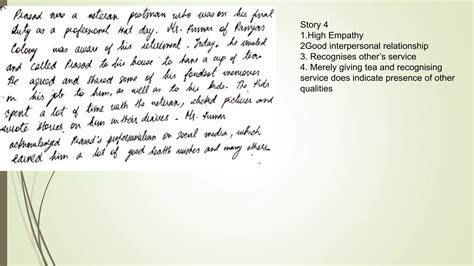 Prasad was a veteran postman who was on his final
duty as a professional that day. Mr. Kumar of Ranjas
Colony was aware of his retirement. Today, he waited
and called Prasad to his house to have a cup of tea.
He agreed and shared some of his fondest memories
in his job to him, as well as to his kids. The kids
spent a lot of time with the veteran, clicked pictures and
wrote stories on him in their diaries. Mr. Kumar
acknowledged Prasad's professionalism on social media, which
earned him a lot of good health wishes and many others.
Story 4
1.High Empathy
2Good interpersonal relationship
3. Recognises other's service
4. Merely giving tea and recognising
service does indicate presence of other
qualities